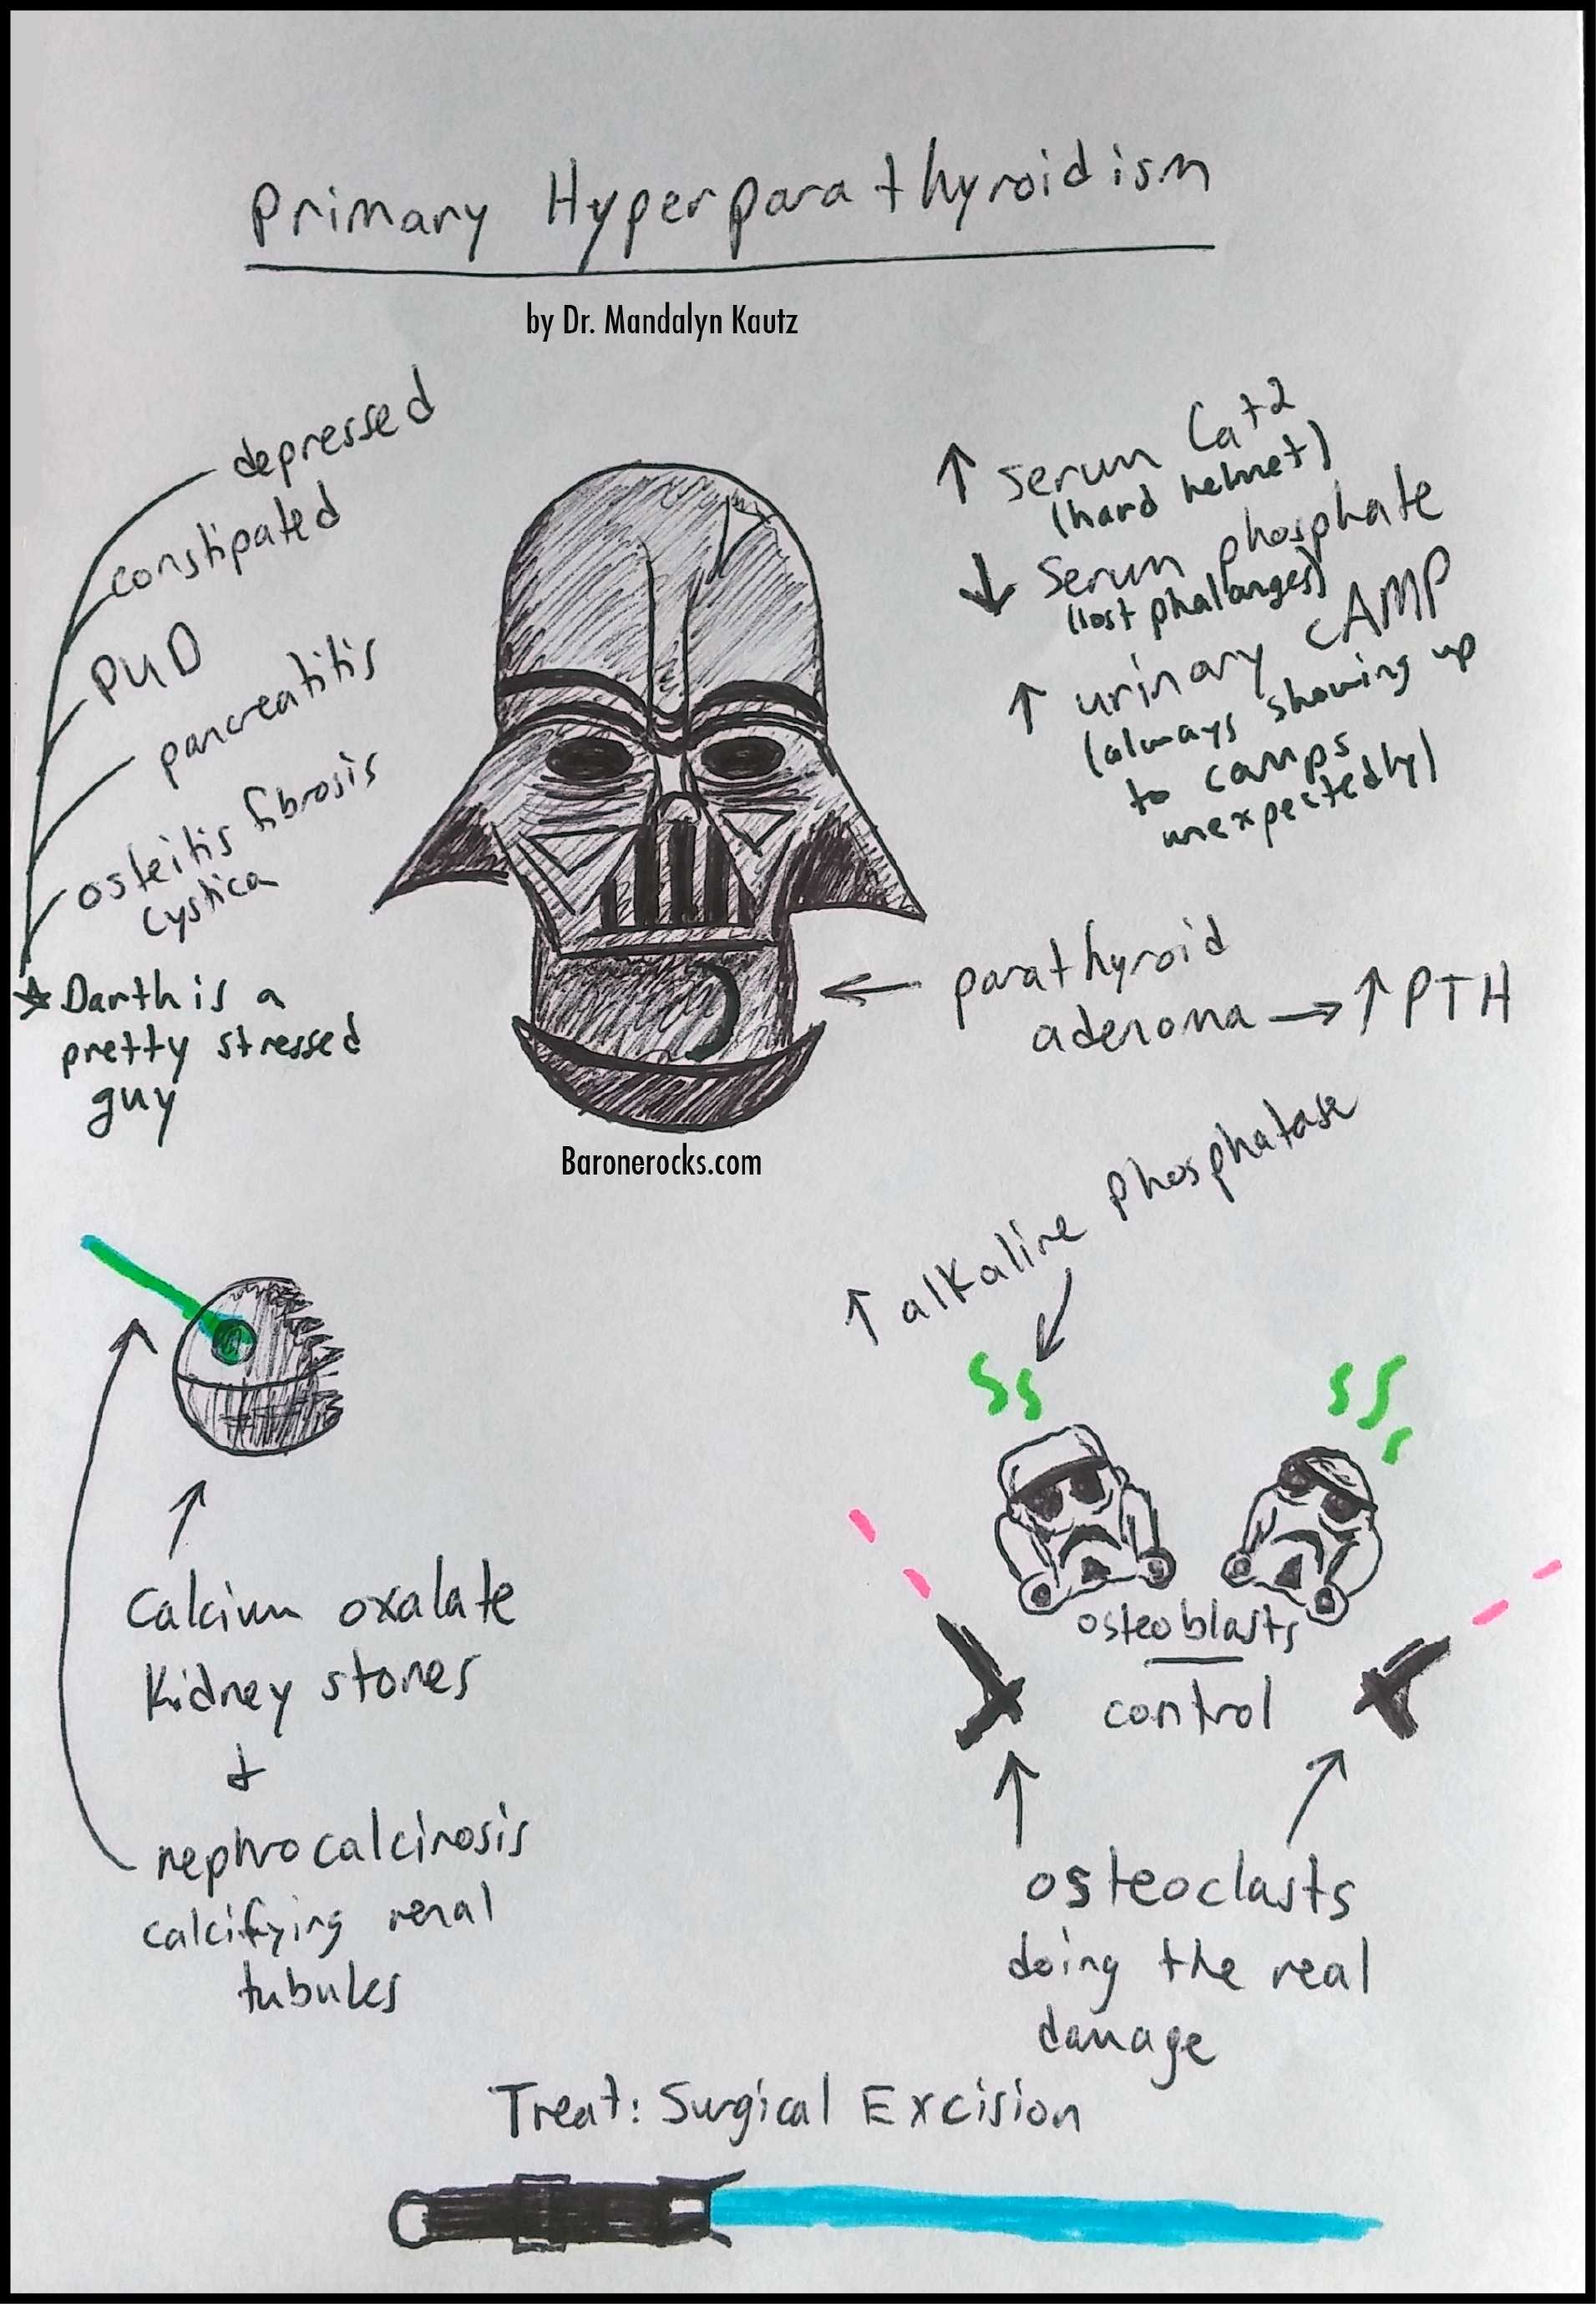 Primary Hyperparathyroidism
by Dr. Mandalyn Kautz
depressed
constipated
PUD
pancreatitis
osteitis fibrosis
cystica
☆ Darth is a
pretty stressed
guy
↑ Serum Ca+2
(hard helmet)
↓ Serum phosphate
(lost phalanges)
↑ urinary cAMP
(always showing up
to camps
unexpectedly)
parathyroid
adenoma → ↑ PTH
Baronerocks.com
↑ alkaline phosphatase
Ss
SSs
osteoblasts
control
Calcium oxalate
Kidney stones
+
nephrocalcinosis
calcifying renal
tubules
osteoclasts
doing the real
damage
Treat: Surgical Excision